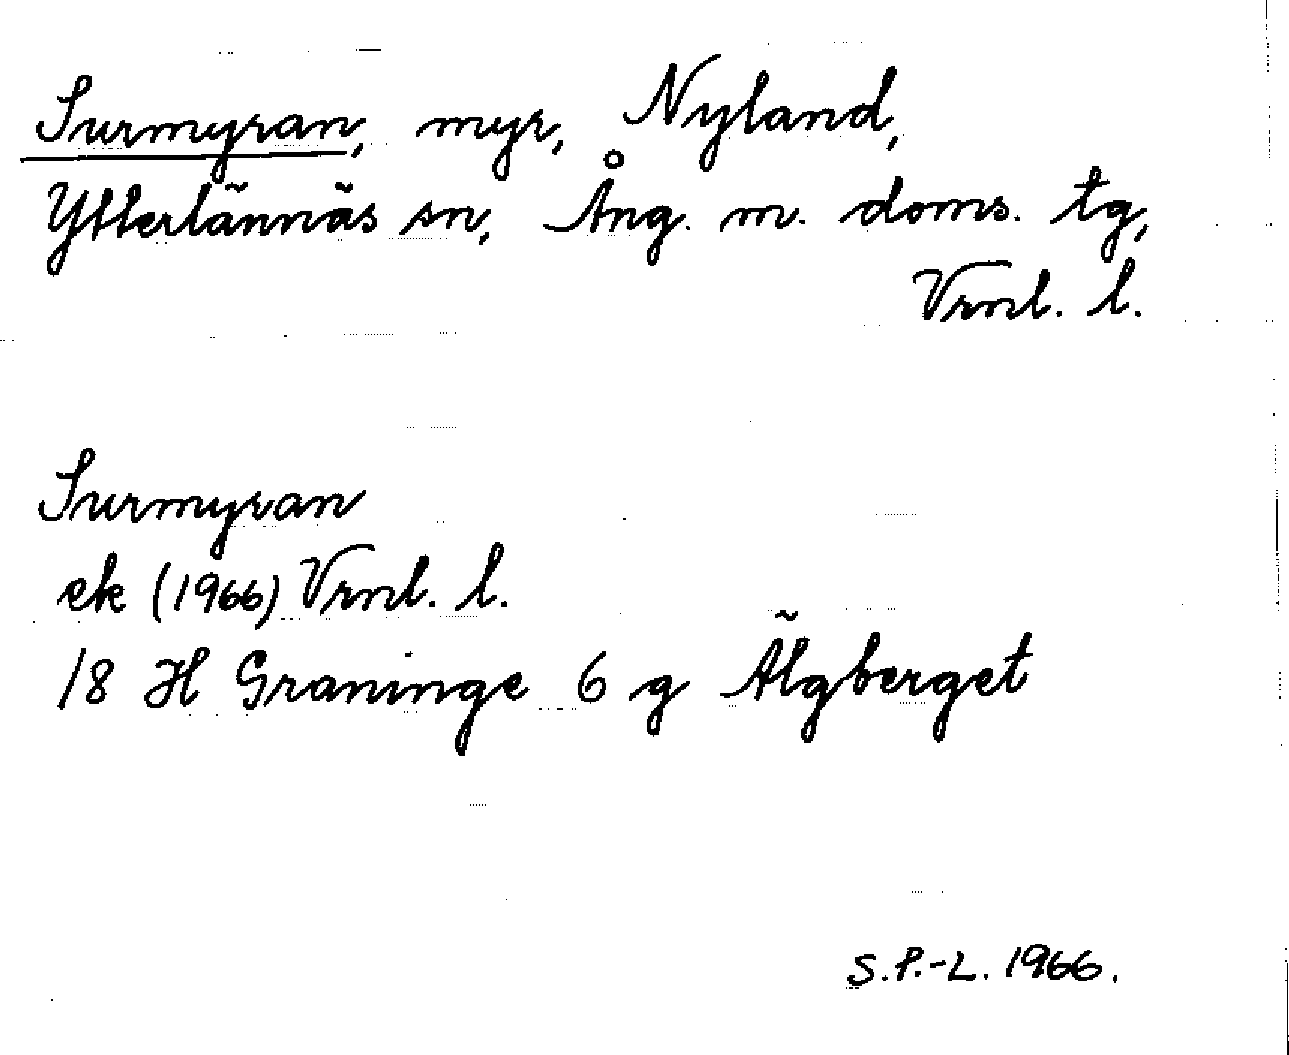 Surmyran, myr, Nyland,
Ytterlännäs sn, Ång. m. doms. tg,
Vrnl. l.
Surmyran
ek (1966) Vrnl. l.
18 H Graninge 6 g Älgberget
S.P.-L. 1966.